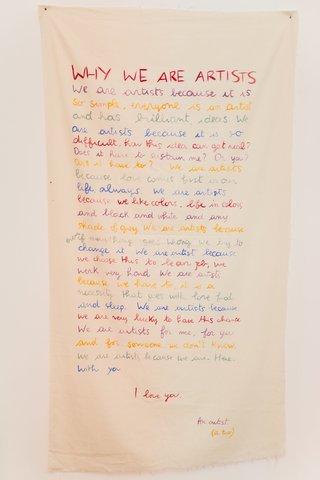 WHY WE ARE ARTISTS
We are artists because it is
so simple, everyone is an artist
and has brilliant ideas. We
are artists because it is so
difficult. How this idea can get real?
Does it have to sustain me? Or you?
Does it have to? We are artists
because love comes first in our
life, always. We are artists
because we like colors, life in colors
and black and white and any
shade of grey. We are artists because
if everything goes wrong we try to
change it. We are artist because
we chose this to be our job, we
work very hard. We are artists
because we have to, it is a
necessity that goes with love, food
and sleep. We are artists because
we are very lucky to have this chance
We are artists for me, for you
and for someone we don't know.
We are artists because we are. Here.
With you
I love you.
An artist.